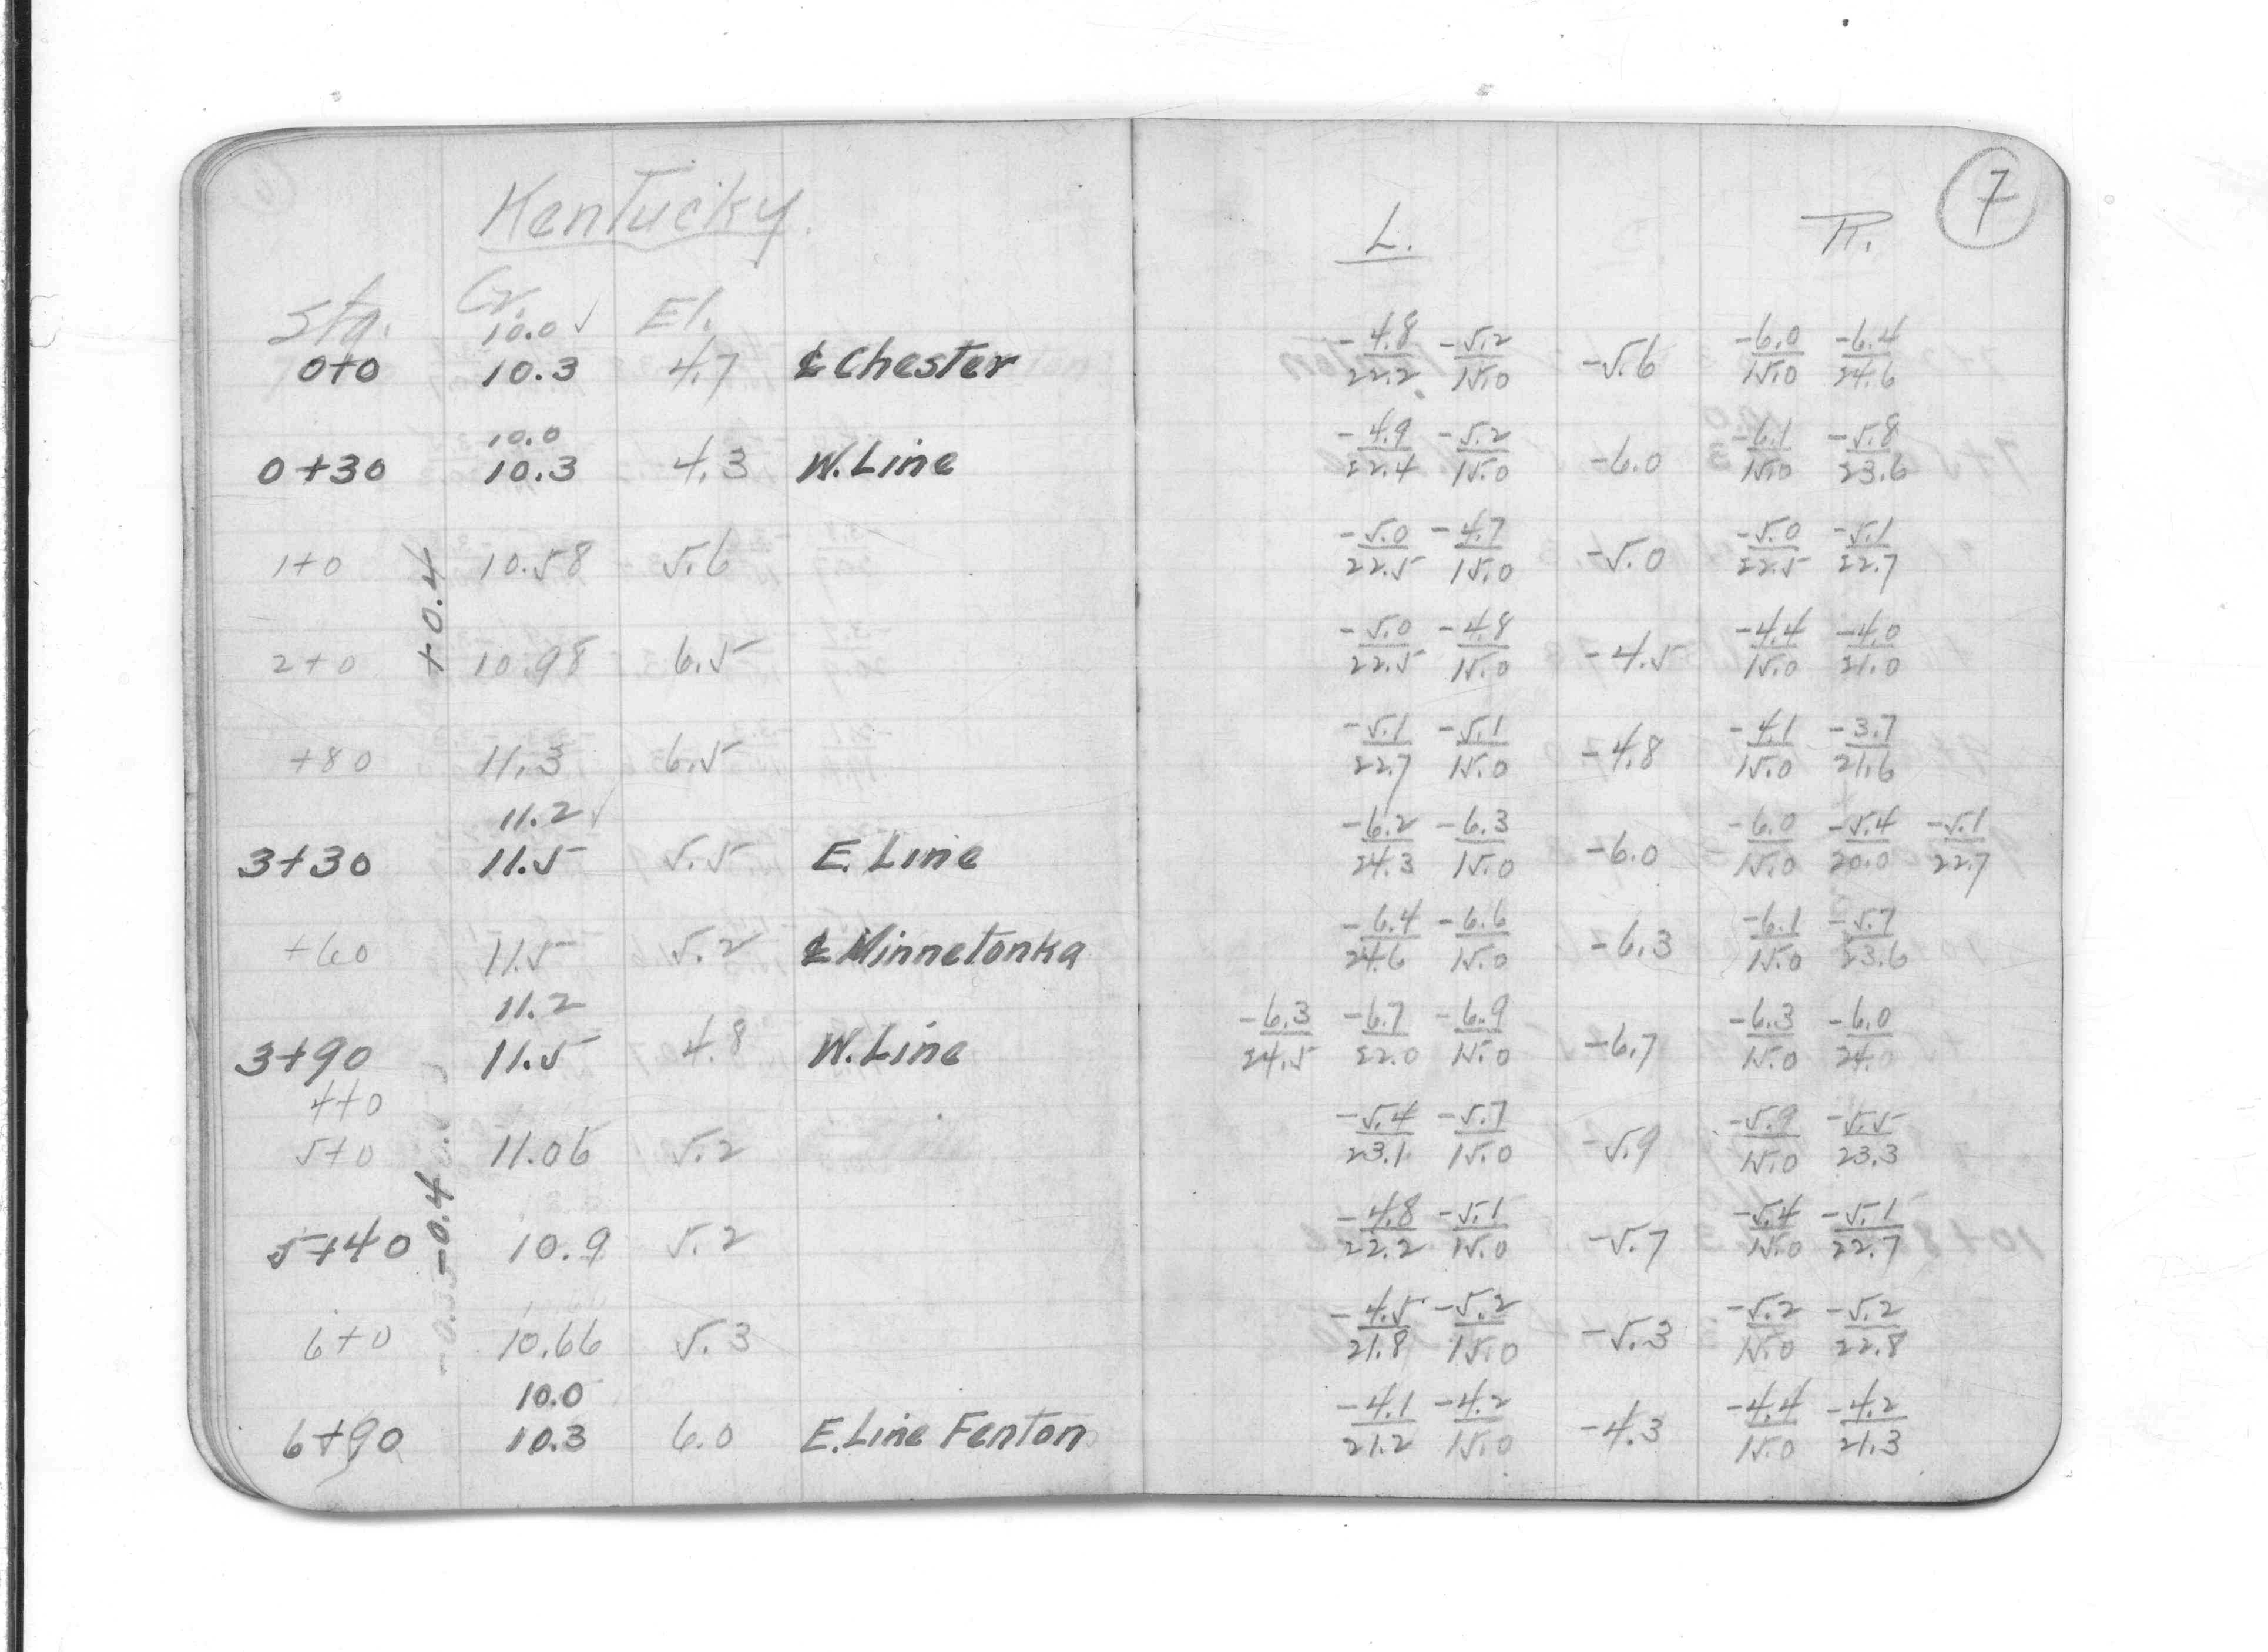 Kentucky.
L. R. 7
Sta. Gr. El.
10.0 ✓
0+0 10.3 4.7 ℄ Chester -4.8/22.2 -5.2/15.0 -5.6 -6.0/15.0 -6.4/24.6
10.0
0+30 10.3 4.3 W. Line -4.9/22.4 -5.2/15.0 -6.0 -6.1/15.0 -5.8/23.6
1+0 10.58 5.6 -5.0/22.5 -4.7/15.0 -5.0 -5.0/22.5 -5.1/22.7
+0.4
2+0 10.98 6.5 -5.0/22.5 -4.8/15.0 -4.5 -4.4/15.0 -4.0/21.0
+80 11.3 6.5 -5.1/22.7 -5.1/15.0 -4.8 -4.1/15.0 -3.7/21.6
11.2 ✓
3+30 11.5 5.5 E. Line -6.2/24.3 -6.3/15.0 -6.0 -6.0/15.0 -5.4/20.0 -5.1/22.7
+60 11.5 5.2 ℄ Minnetonka -6.4/24.6 -6.6/15.0 -6.3 -6.1/15.0 -5.7/23.6
11.2
3+90 11.5 4.8 W. Line -6.3/24.5 -6.7/22.0 -6.9/15.0 -6.7 -6.3/15.0 -6.0/24.0
4+0
5+0 11.06 5.2 -5.4/23.1 -5.7/15.0 -5.9 -5.9/15.0 -5.5/23.3
-0.4
5+40 10.9 5.2 -4.8/22.2 -5.1/15.0 -5.7 -5.4/15.0 -5.1/22.7
6+0 10.66 5.3 -4.5/21.8 -5.2/15.0 -5.3 -5.2/15.0 -5.2/22.8
10.0
6+90 10.3 6.0 E. Line Fenton -4.1/21.2 -4.2/15.0 -4.3 -4.4/15.0 -4.2/21.3